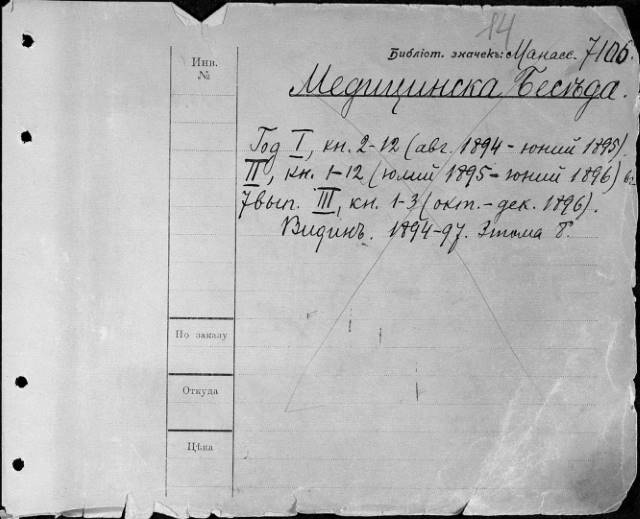 14
Библіот. значекъ: Манасс. 710б.
Инв.
№
Медицинска Бесѣда.
Год I, кн. 2-12 (авг. 1894 - юний 1895)
II, кн. 1-12 (юлий 1895 - юний 1896) в
7 вып. III, кн. 1-3 (окт. - дек. 1896).
Видинъ. 1894-97. 3 тома 8.
По заказу
Откуда
Цѣна